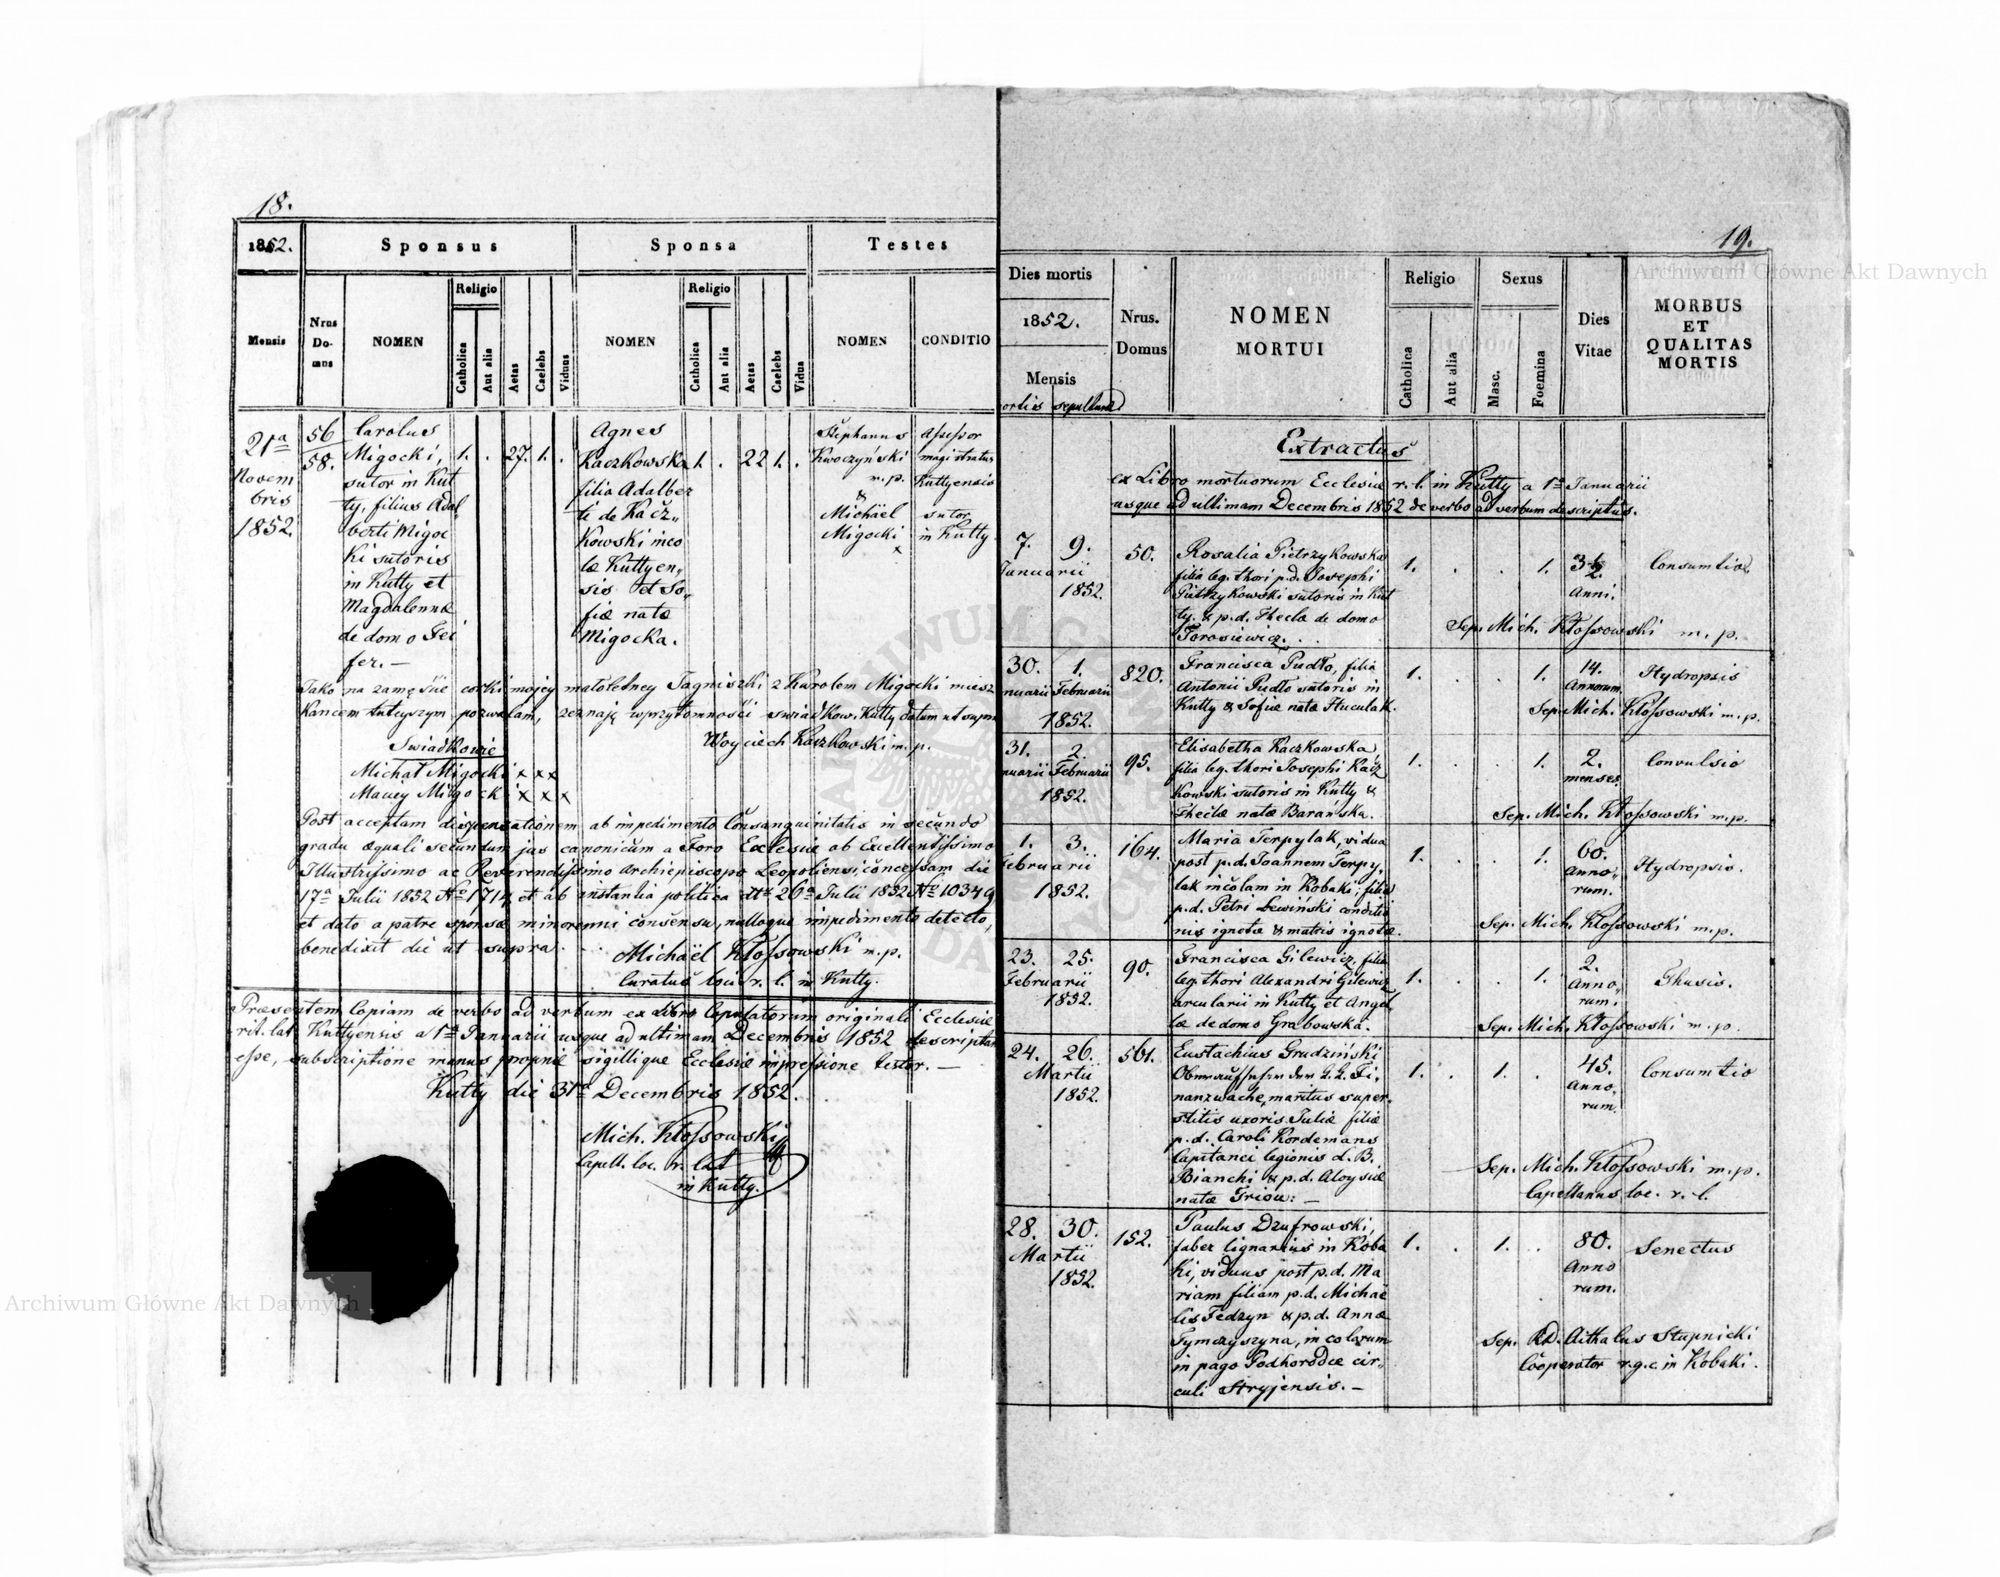 18.
1852.
Sponsus
Sponsa
Testes
Mensis
Nrus Domus
NOMEN
Religio
Catholica
Aut alia
Aetas
Caelebs
Viduus
NOMEN
Religio
Catholica
Aut alia
Aetas
Caelebs
Vidua
NOMEN
CONDITIO
21a
Novem
bris
1852.
56
58.
Carolus
Migocki,
sutor in Kut
ty, filius Adal
berti Migoc
ki sutoris
in Kutty et
Magdalennæ
de domo Fei
fer. —
1. . 27. 1. .
Agnes
Kaczkowska
filia Adalber
ti de Kacz„
kowski inco
læ Kuttyen„
sis et So„
fiæ natæ
Migocka.
1. . 22 1. .
Stephanus
Kwoczyński
m.p.
&
Michäel
Migocki
x
Assessor
magistratus
Kuttyensis
sutor
in Kutty
Jako na zamęście corki mojey małoletney Jagniszki z Karolem Migocki miesz
kancem tuteyszym pozwalam, zeznaję w przytomności swiadkow. Kutty datum ut supra
Swiadkowie
Woyciech Kaczkowski m.p.
Michał Migocki x x x
Maciey Migocki x x x
Post acceptam dispensationem ab impedimento Consanguinitatis in secundo
gradu æquali secundum jus canonicum a Foro Ecclesiæ ab Excellentissimo
Illustrissimo ac Reverendissimo Archiepiscopo Leopoliensi, concessam die
17a Julii 1852 No 1714, et ab instantia politica dto 26a Julii 1852 No 10349
et dato a patre sponsæ minorenni consensu, nulloque impedimento detecto,
benedixit die ut supra.
Michäel Kłossowski m.p.
Curatus loci r. l. in Kutty.
Præsentem Copiam de verbo ad verbum ex Libro Copulatorum originali Ecclesiæ
rit. lat. Kuttyensis a 1ma Januarii usque ad ultimam Decembris 1852 descriptam
esse, subscriptione manus propriæ sigillique Ecclesiæ impressione testor. —
Kutty die 31a Decembris 1852.
Mich. Kłossowski
Capell. loc. r. lat
in Kutty.
19.
Dies mortis
1852.
Mensis
ortis sepulturæ
Nrus.
Domus
NOMEN
MORTUI
Religio
Catholica
Aut alia
Sexus
Masc.
Foemina
Dies
Vitae
MORBUS
ET
QUALITAS
MORTIS
Extractus
ex Libro mortuorum Ecclesiæ r. l. in Kutty a 1ma Januarii
usque ad ultimam Decembris 1852 de verbo ad verbum descriptus.
7. 9.
Januarii
1852.
50.
Rosalia Pietrzykowska
filia leg. thori p.d. Josephi
Pietrzykowski sutoris in Kut
ty, & p.d. Theclæ de domo
Torosiewicz.
1. . . 1.
Anni.
Consumtio.
Sep. Mich. Kłossowski m. p.
30. 1.
nuarii Februarii
1852.
820.
Francisca Pudło, filia
Antonii Pudło sutoris in
Kutty & Sofiæ natæ Huculak.
1. . . 1.
14.
Annorum.
Hydropsis
Sep. Mich. Kłossowski m.p.
31. 2.
nuarii Februarii
1852.
95.
Elisabetha Kaczkowska,
filia leg. thori Josephi Kacz
kowski sutoris in Kutty &
Theclæ natæ Barańska.
1. . . 1.
2.
menses.
Convulsio
Sep. Mich. Kłossowski m.p.
1. 3.
Februarii
1852.
164.
Maria Terpylak, vidua
post p.d. Joannem Terpy„
lak incolam in Kobaki; filia
p.d. Petri Lewiński conditio
nis ignotæ & matris ignotæ.
1. . . 1.
60.
Anno„
rum.
Hydropsis.
Sep. Mich. Kłossowski m.p.
23. 25.
Februarii
1852.
90.
Francisca Gilewicz, filia
leg. thori Alexandri Gilewicz
arcularii in Kutty et Angel
læ de domo Grabowska.
1. . . 1.
2.
Anno„
rum.
Thusis.
Sep. Mich. Kłossowski m.p.
24. 26.
Martii
1852.
561.
Eustachius Grudziński
Oberaufseher der k. k. Fi„
nanzwache, maritus super„
stitis uxoris Juliæ filiæ
p.d. Caroli Kordemans
Capitanei legionis d. B.
Bianchi & p.d. Aloysiæ
natæ Triou: —
1. . 1. .
45.
Anno„
rum.
Consumtio
Sep. Mich. Kłossowski m.p.
Capellanus loc. r. l.
28. 30.
Martii
1852.
152.
Paulus Dzufrowski,
faber lignarius in Koba
ki, viduus post p.d. Ma
riam filiam p.d. Michaë
lis Fedzyn & p.d. Annæ
Tymczyszyna, incolarum
in pago Podhorodce cir„
culi Stryjensis. —
1. . 1. .
80.
Anno
rum.
Senectus
Sep. RD. Aithalus Stupnicki
Cooperator r.g.c. in Kobaki.
Archiwum Główne Akt Dawnych
Archiwum Główne Akt Dawnych